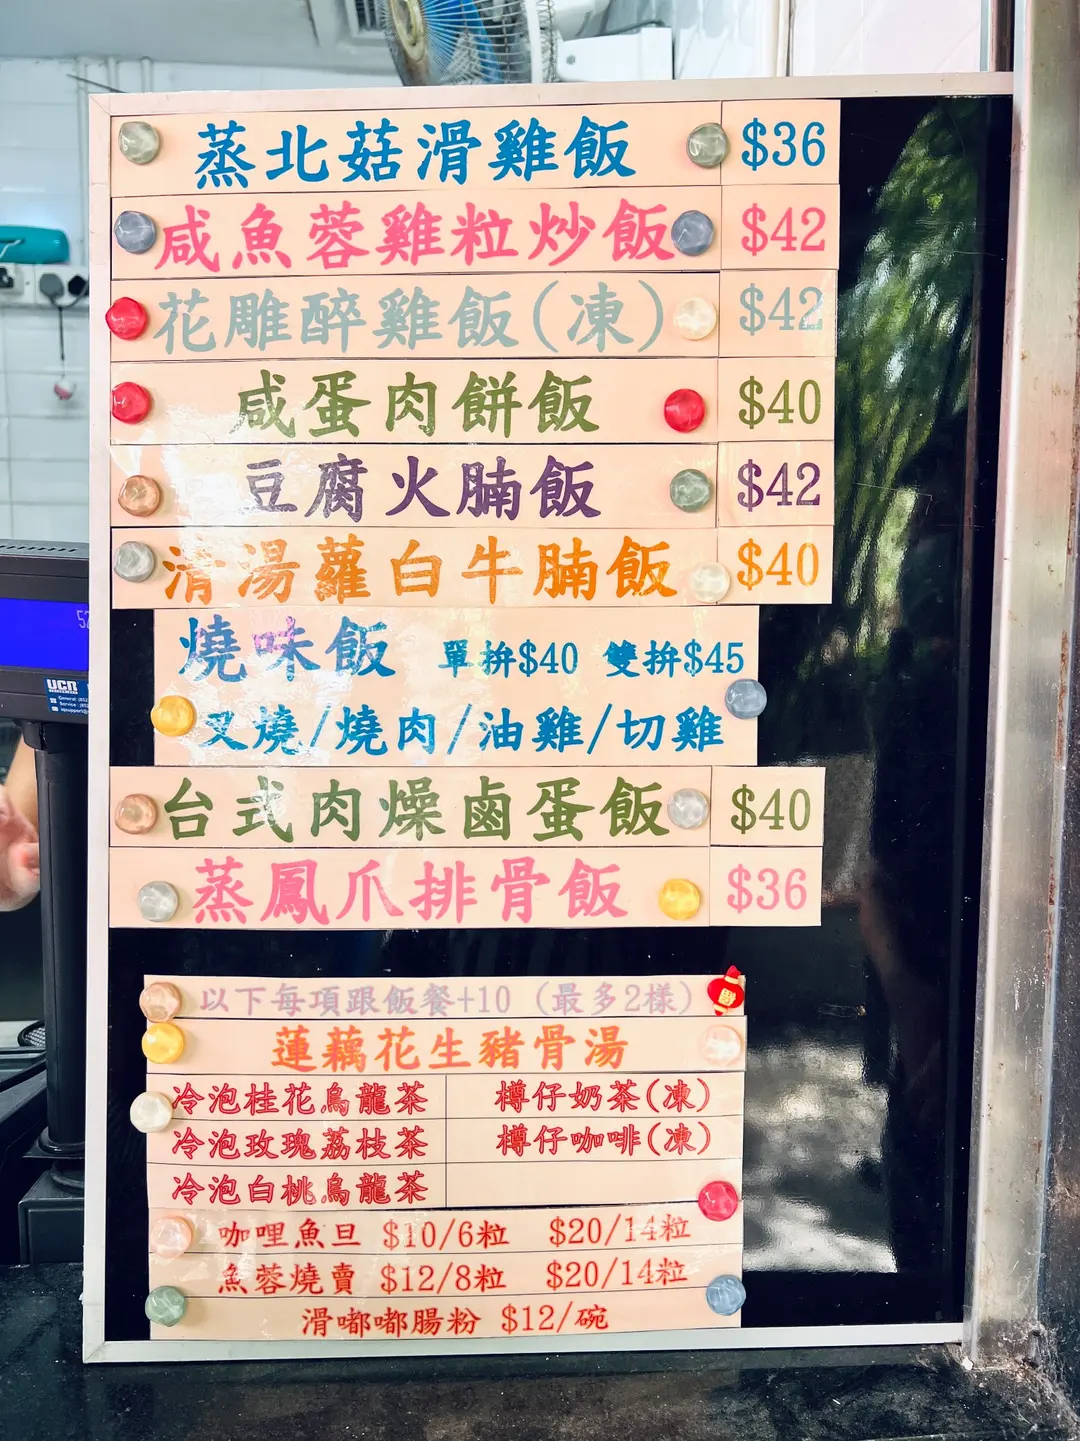 蒸北菇滑雞飯 $36
咸魚蓉雞粒炒飯 $42
花雕醉雞飯(凍) $42
咸蛋肉餅飯 $40
豆腐火腩飯 $42
清湯蘿白牛腩飯 $40
燒味飯 單拚$40 雙拚$45
叉燒/燒肉/油雞/切雞
台式肉燥鹵蛋飯 $40
蒸鳳爪排骨飯 $36
以下每項跟飯餐+10 (最多2樣)
蓮藕花生豬骨湯
冷泡桂花烏龍茶 樽仔奶茶(凍)
冷泡玫瑰荔枝茶 樽仔咖啡(凍)
冷泡白桃烏龍茶
咖哩魚旦 $10/6粒 $20/14粒
魚蓉燒賣 $12/8粒 $20/14粒
滑嘟嘟腸粉 $12/碗
UCN